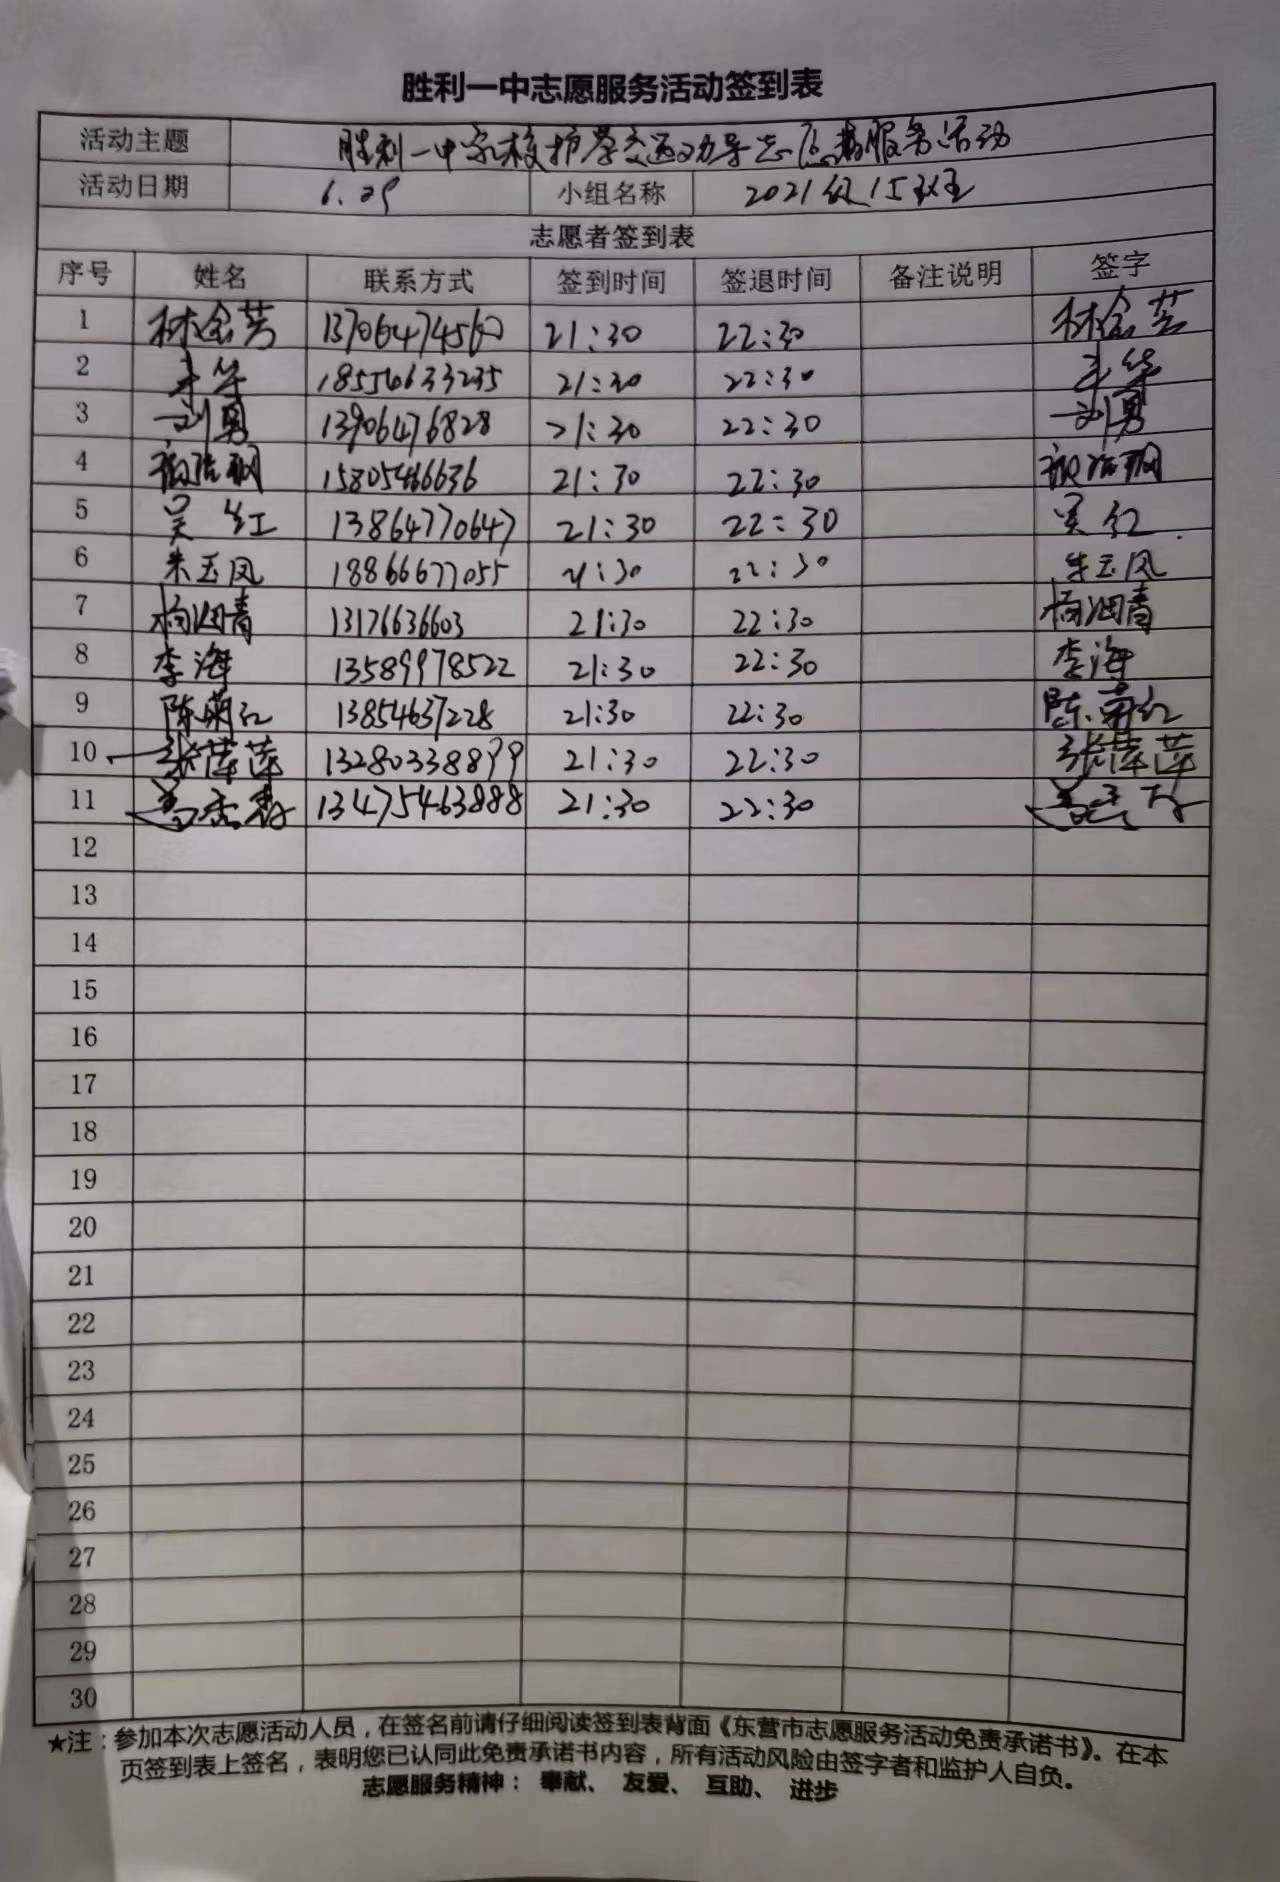 胜利一中志愿服务活动签到表
活动主题 胜利一中家校护学交通劝导志愿者服务活动
活动日期 6.29 小组名称 2021级15班
志愿者签到表
序号 姓名 联系方式 签到时间 签退时间 备注说明 签字
1 林金芳 13706474560 21:30 22:30 林金芳
2 18550633235 21:30 22:30
3 刘勇 13906476828 21:30 22:30 刘勇
4 15805466636 21:30 22:30
5 吴红 13864770647 21:30 22:30 吴红
6 朱玉凤 18866677055 21:30 22:30 朱玉凤
7 杨润青 13176636603 21:30 22:30 杨润青
8 李海 13589978522 21:30 22:30 李海
9 陈菊红 13854637228 21:30 22:30 陈菊红
10 张萍萍 13280338899 21:30 22:30 张萍萍
11 13475463888 21:30 22:30
12
13
14
15
16
17
18
19
20
21
22
23
24
25
26
27
28
29
30
★注：参加本次志愿活动人员，在签名前请仔细阅读签到表背面《东营市志愿服务活动免责承诺书》。在本
页签到表上签名，表明您已认同此免责承诺书内容，所有活动风险由签字者和监护人自负。
志愿服务精神： 奉献、 友爱、 互助、 进步